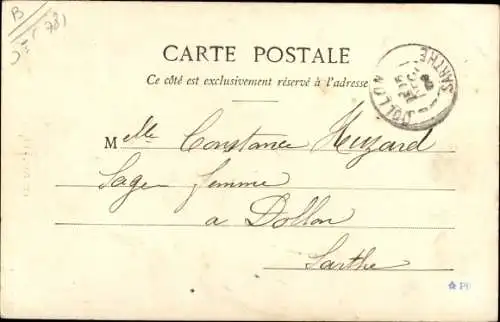 B
CARTE POSTALE
Ce côté est exclusivement réservé à l'adresse
DOLLON SARTHE
Melle Constance Huzard
Sage femme
a Dollon
Sarthe